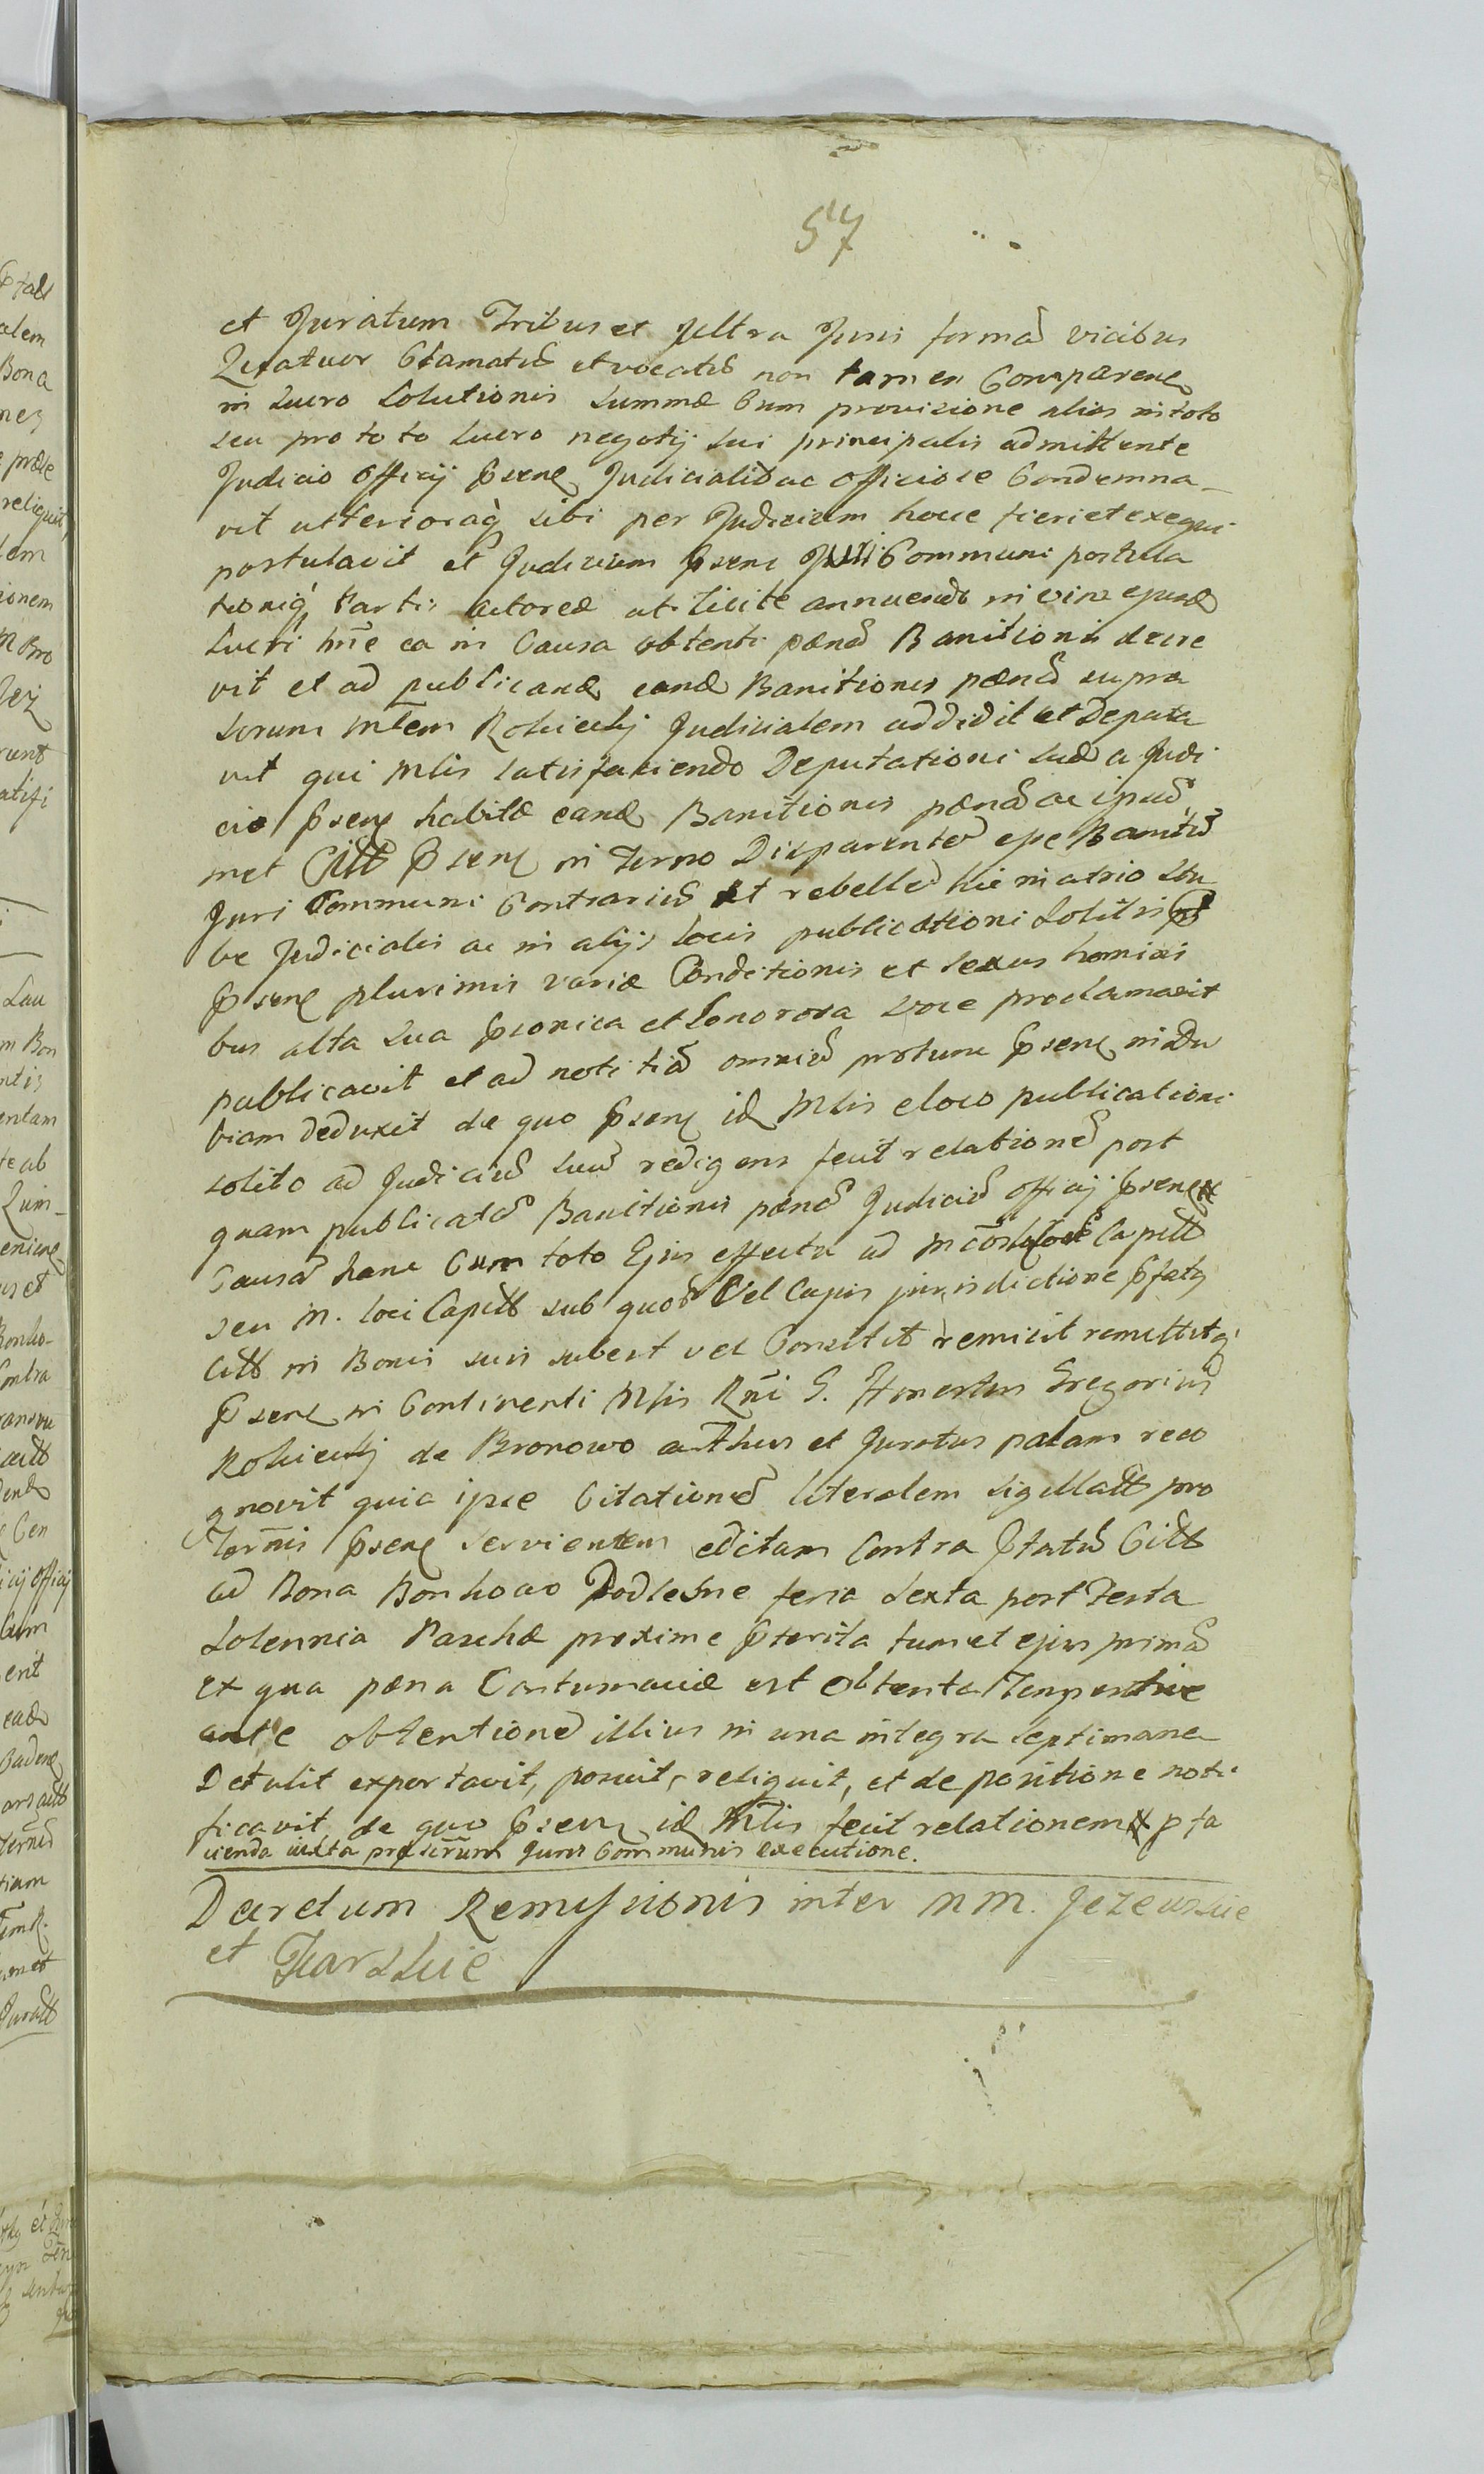 57
et Juratum Tribus et Ultra Juris formã vicibus
Quatuor Clamatũ et vocatũ non tamen Comparenẽ
in Lucro Solutionis Summæ Cum provisione alias in toto
seu pro toto lucro negotij sui principalis admittente
Judicio Officij pseñ Judicialiter ac officiose Condemna_
vit ulterioraq̃ sibi per Judicium hocce fieri et exequi
postulavit et Judicium pseñs Juri Communi postula
tioniq̃ Partis actoreæ uti licite annuendo in vim ejusdẽ
Lucri hñe ea in Causa obtenti pænã Banitionis decre
vit et ad publicandã eandẽ Banitionis pænã supra
Mlem Rokicky Judicialem addidit et Deputa
vit qui Mlis satisfaciendo Deputationi suæ a Judi
cio pseñ habitæ eandẽ Banitionis pænã ac ipsũ
met Citt pseñ in Termo Disparentẽ Banitũ
Juri Communi Contrariũ et rebellẽ hic in atrio Stu
bæ Judicialis ac in alijs locis publicationi Solitis
pseñ plurimis variæ Conditionis et Sexus homini
bus alta sua et Sonorosa voce proclamavit
publicavit et ad notitiã omniũ protunc pseñ in Du
biam deduxit de quo pseñ id Mlis e loco publicationi
solito ad Judiciũ suũ redigens fecit relationẽ post
quam publicatã Banitionis pænã Judiciũ officij pseñ
Causã hanc Cum toto Ejus effectu ad Capitt
seu M. loci Capitt sub quorũ Vel Cujus jurisdictione pfatg
Citt in Bonis suis subest vel Consistit remisit remittitq̃
pseñ in Continenti Mlis Rñi G. Honestus Gregorius
Rokicky de Bronowo authus et Juratus palam reco
gnovit quia ipse Citationẽ literalem sigillatt pro
Termis pseñ servientem editam Contra Citt
ad Bona Bonkowo Podlesne feria Sexta post Festa
Solennia Paschæ proxime pterita tum et ejus primã
ex qua pæna Contumaciæ est Obtenta Tempestive
ante obtentionẽ illius in una integra Septimana
Detulit exportavit, posuit, reliquit, et de positione noti
ficavit de quo pseñ id Mlis fecit relationem p fa
cienda iuxta præscrum Juris Communis executione.
Decretum Remissionis inter MM. Jezewskie
et Karskie